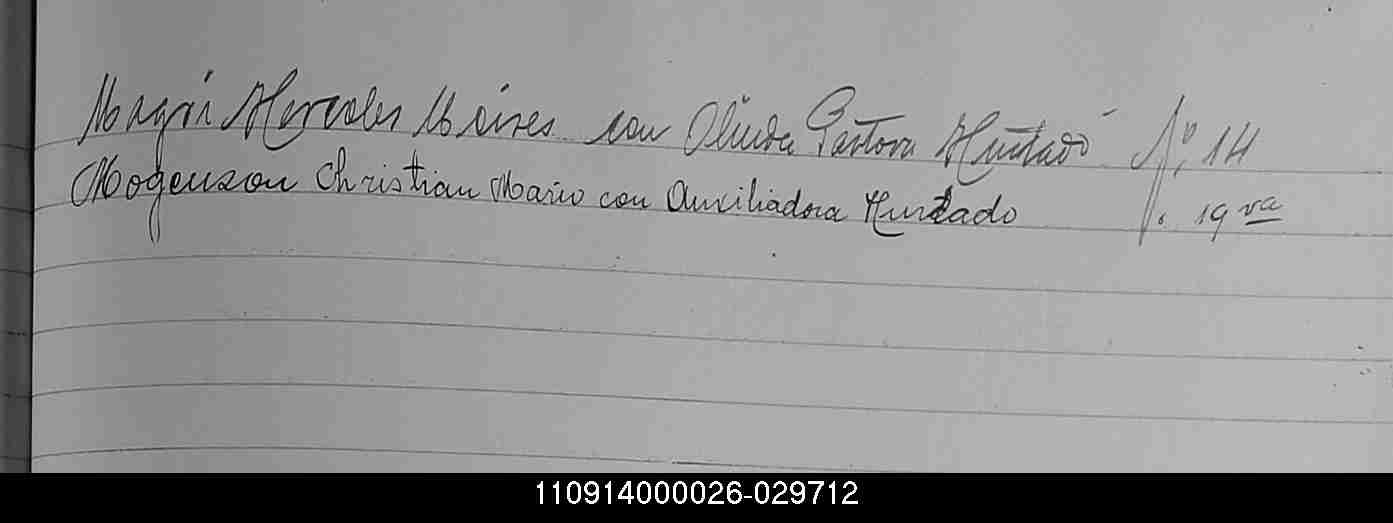 Magín Hercules Moises con Olinda Pastora Hurtado Nº. 14
Mogenson Christian Mario con Auxiliadora Hurtado f. 19 va
110914000026-029712